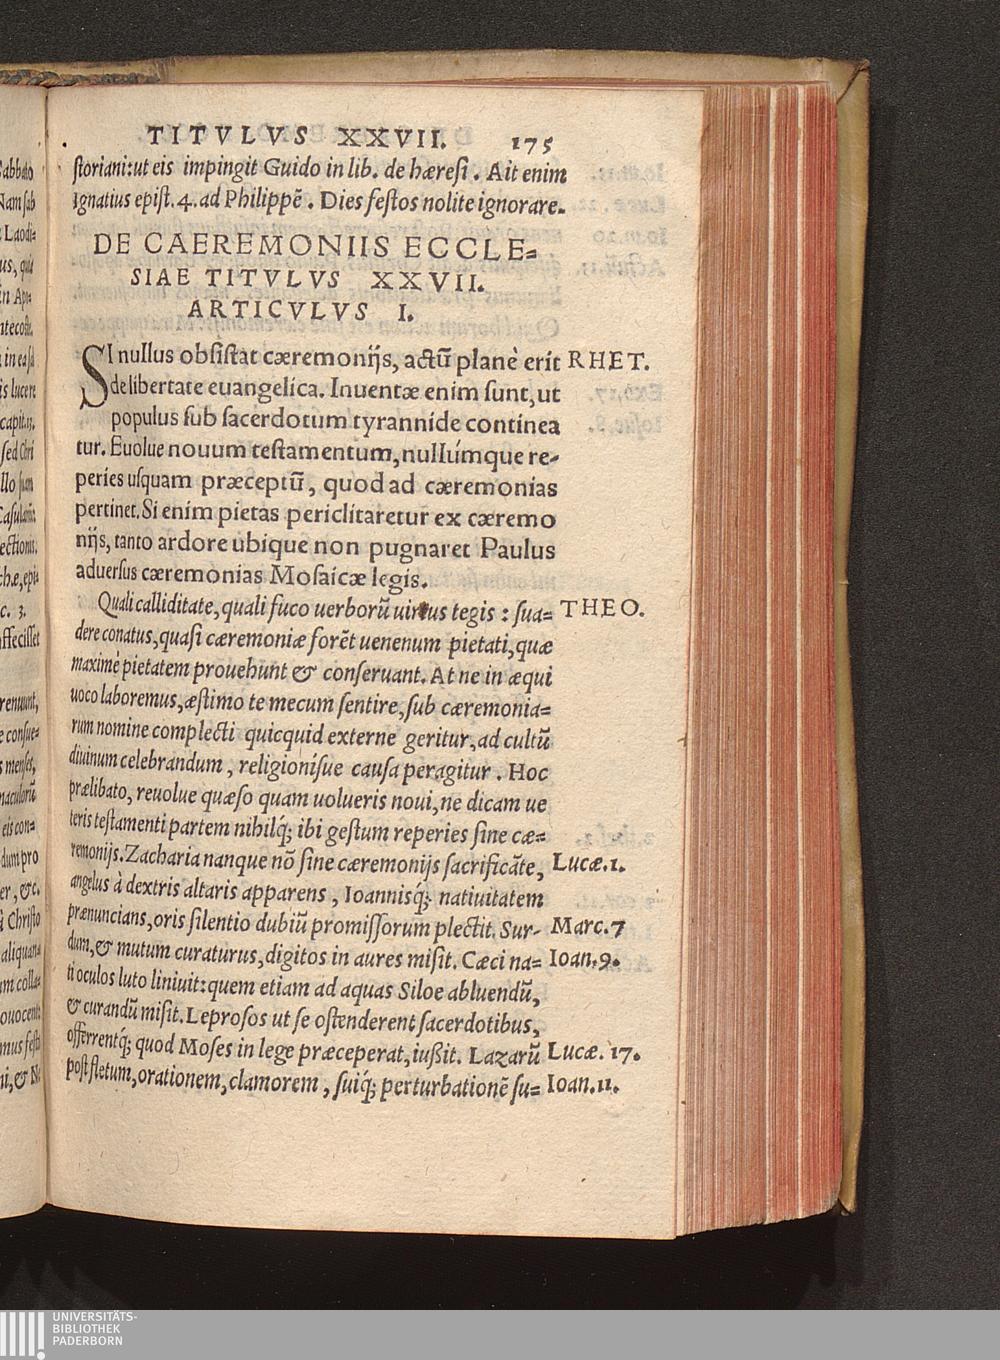 TITVLVS XXVII. 175
storiani: ut eis impingit Guido in lib. de hæresi. Ait enim
Ignatius epist. 4. ad Philippē. Dies festos nolite ignorare.
DE CAEREMONIIS ECCLE=
SIAE TITVLVS XXVII.
ARTICVLVS I.
SI nullus obsistat cæremonijs, actū planè erit RHET.
de libertate euangelica. Inuentæ enim sunt, ut
populus sub sacerdotum tyrannide continea
tur. Euolue nouum testamentum, nullúmque re-
peries usquam præceptū, quod ad cæremonias
pertinet. Si enim pietas periclitaretur ex cæremo
nijs, tanto ardore ubique non pugnaret Paulus
aduersus cæremonias Mosaicæ legis.
Quali calliditate, quali fuco uerborū uirus tegis: sua= THEO.
dere conatus, quasi cæremoniæ forēt uenenum pietati, quæ
maximè pietatem prouehunt & conseruant. At ne in æqui
uoco laboremus, æstimo te mecum sentire, sub cæremonia=
rum nomine complecti quicquid externe geritur, ad cultū
diuinum celebrandum, religionisue causa peragitur. Hoc
prælibato, reuolue quæso quam uolueris noui, ne dicam ue
teris testamenti partem nihilq́; ibi gestum reperies sine cæ=
remonijs. Zacharia nanque nō sine cæremonijs sacrificāte, Lucæ.1.
angelus à dextris altaris apparens, Ioannisq́; natiuitatem
prænuncians, oris silentio dubiū promissorum plectit. Sur- Marc.7
dum, & mutum curaturus, digitos in aures misit. Cæci na= Ioan.9.
ti oculos luto liniuit: quem etiam ad aquas Siloe abluendū,
& curandū misit. Leprosos ut se ostenderent sacerdotibus,
offerrentq́; quod Moses in lege præceperat, iußit. Lazarū Lucæ. 17.
post fletum, orationem, clamorem, suiq́; perturbationē su= Ioan.11.
UNIVERSITÄTS-
BIBLIOTHEK
PADERBORN